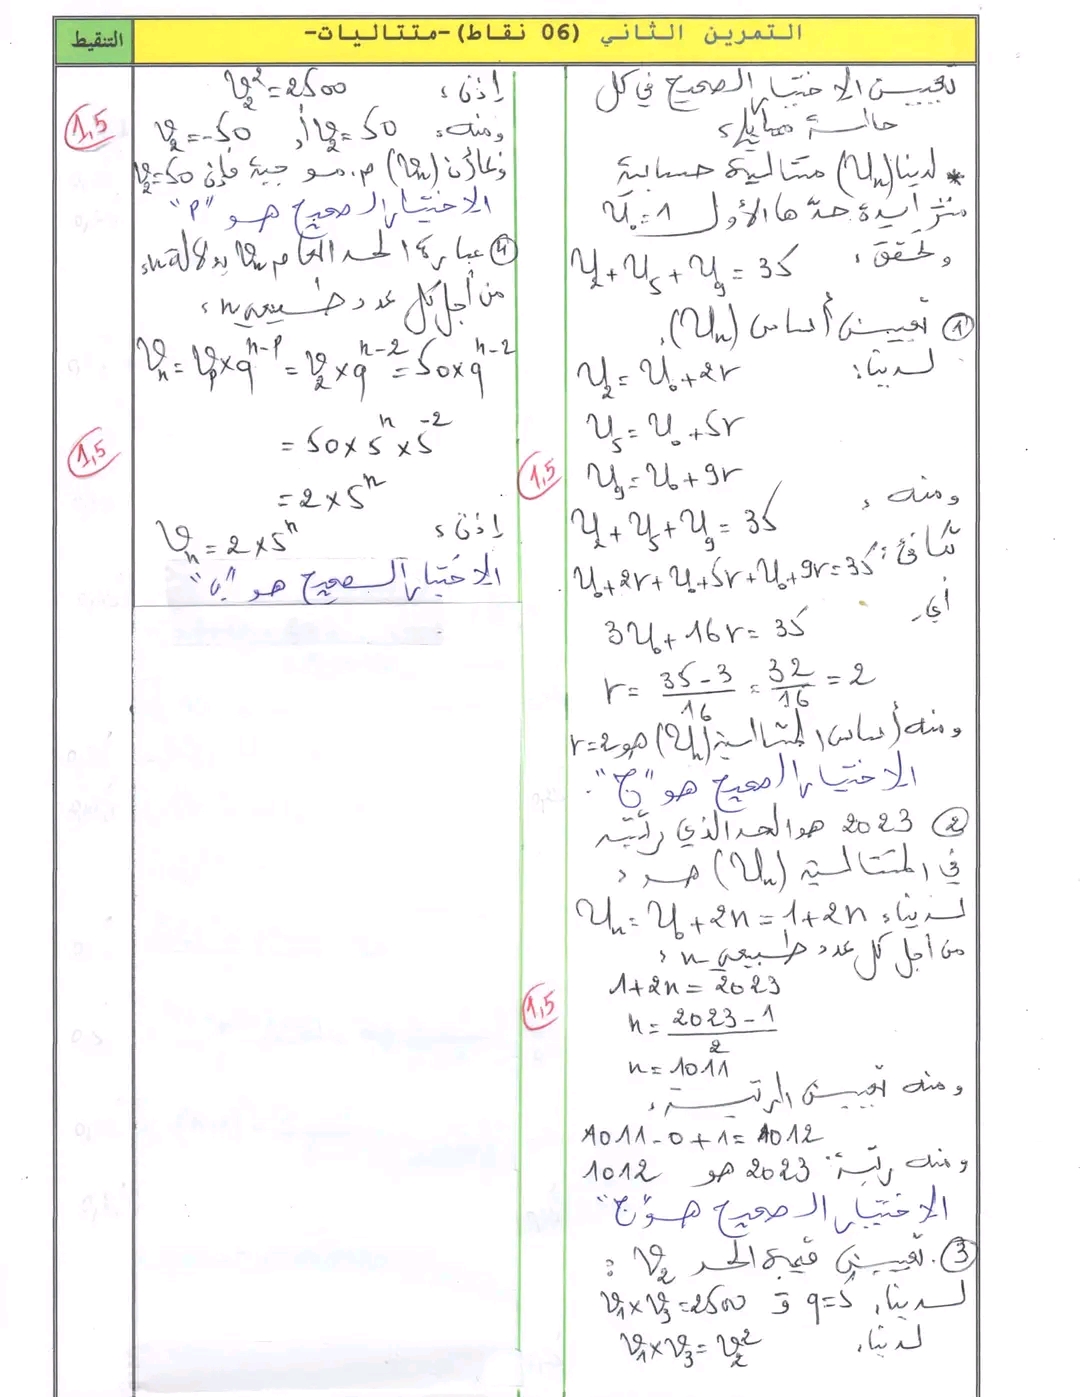 التمرين الثاني (06 نقاط) -متتاليات-
التنقيط
تعيين الاختيار الصحيح في كل
حالة مما يلي:
* لدينا (Uₙ) متتالية حسابية
متزايدة حدها الأول U₀=1
وتحقق:
U₂+U₅+U₉=35
① تعيين أساس (Uₙ):
لدينا:
U₂=U₀+2r
U₅=U₀+5r
U₉=U₀+9r
1,5
ومنه:
U₂+U₅+U₉=35
تكافئ:
U₀+2r+U₀+5r+U₀+9r=35
أي
3U₀+16r=35
r= (35-3)/16 = 32/16 = 2
ومنه أساس المتتالية (Uₙ) هو r=2
الاختيار الصحيح هو "ج".
② 2023 هو الحد الذي رتبته
في المتتالية (Uₙ) هو:
لدينا: Uₙ=U₀+2n=1+2n
من أجل كل عدد طبيعي n:
1+2n=2023
n= (2023-1)/2
n=1011
1,5
ومنه تعيين الرتبة:
1011-0+1=1012
ومنه رتبة: 2023 هو 1012
الاختيار الصحيح هو "ج"
③. تعيين قيمة الحد V₂:
لدينا: q=5 و V₁×V₃=2500
لدينا: V₁×V₃=V₂²
إذن: V₂²=2500
ومنه: V₂=50 أو V₂=-50
1,5
وبما أن (Vₙ) م. موجبة فإن V₂=50
الاختيار الصحيح هو "أ"
④ عبارة الحد العام Vₙ بدلالة n:
من أجل كل عدد طبيعي n:
Vₙ=Vₚ×qⁿ⁻ᵖ=V₂×qⁿ⁻²=50×qⁿ⁻²
=50×5ⁿ×5⁻²
1,5
=2×5ⁿ
إذن: Vₙ=2×5ⁿ
الاختيار الصحيح هو "ب"